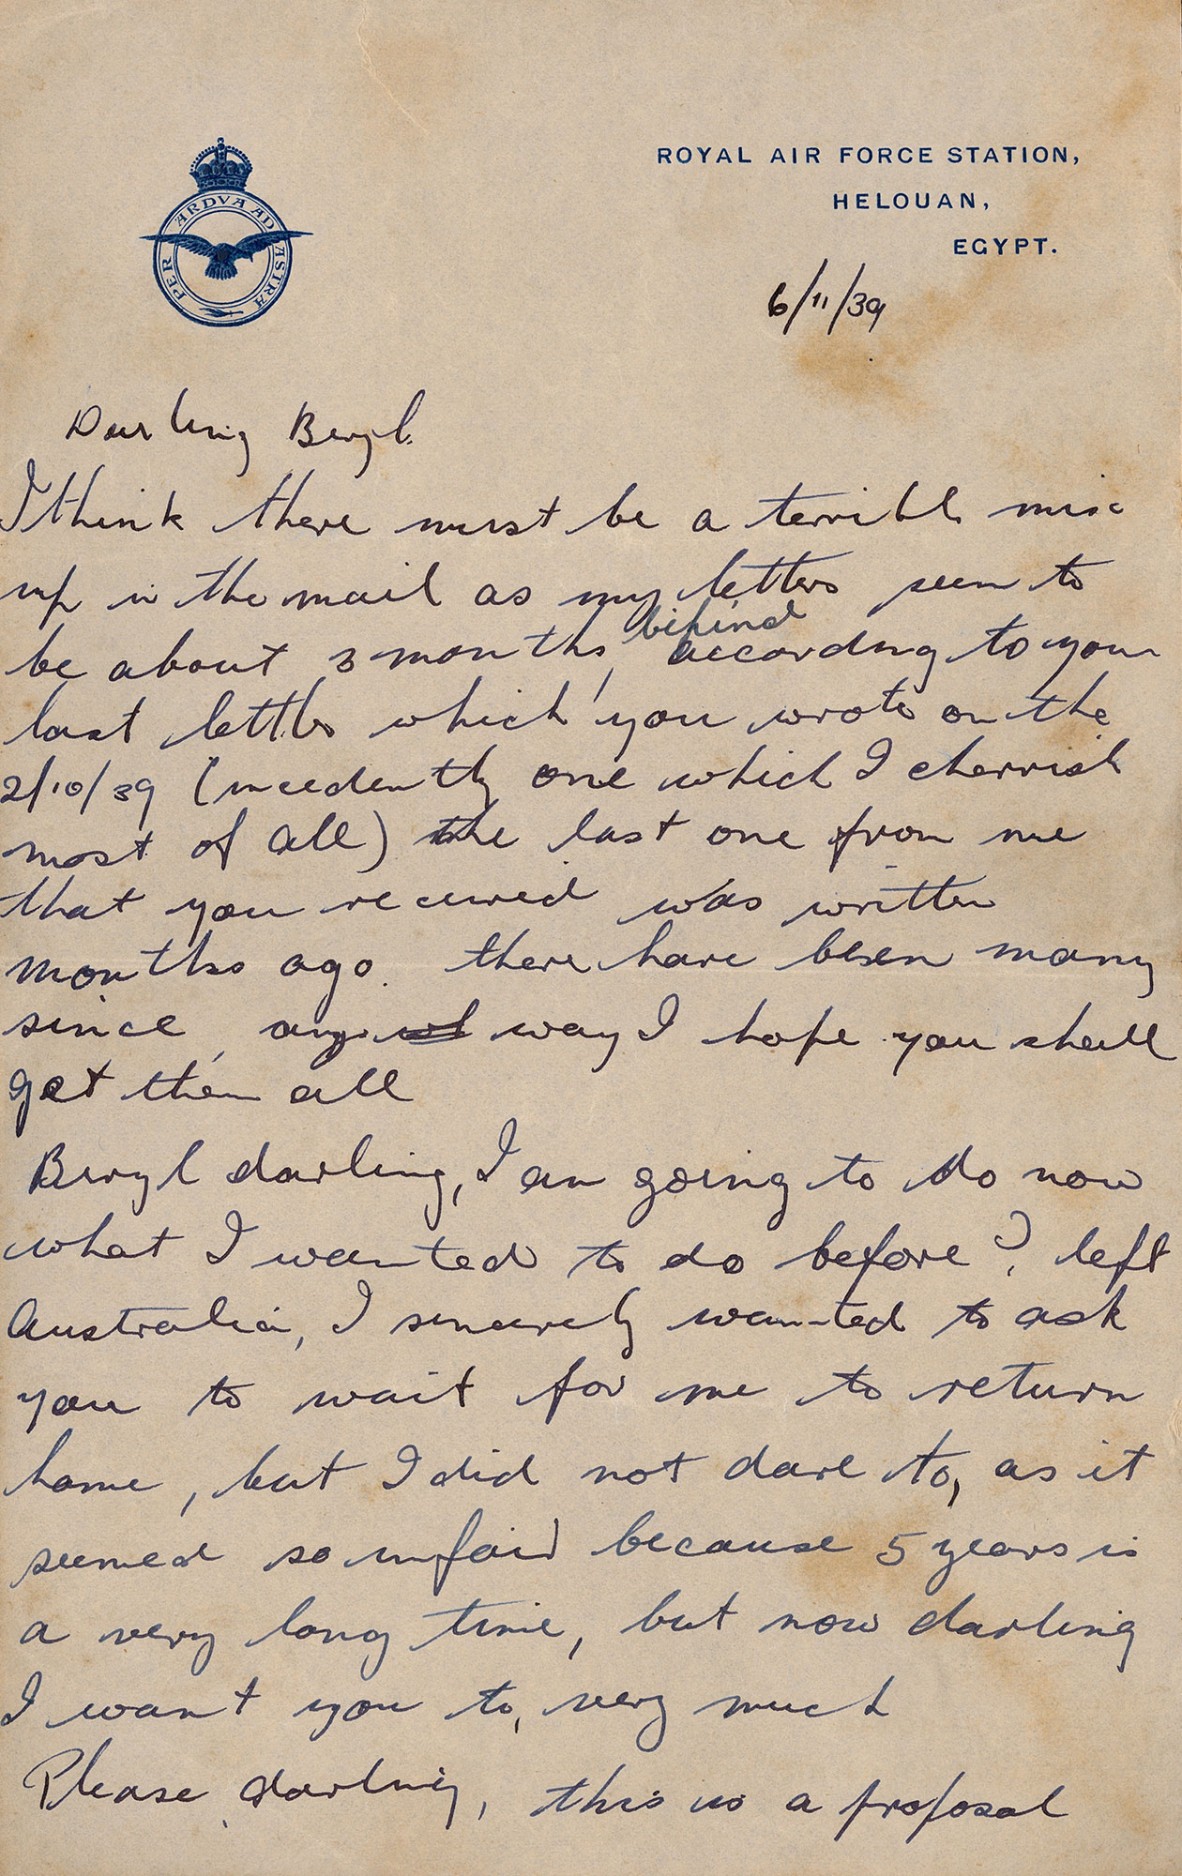 PER ARDVA AD ASTRA
ROYAL AIR FORCE STATION,
HELOUAN,
EGYPT.
6/11/39
Darling Beryl
I think there must be a terrible mix
up in the mail as my letters seem to
be about 3 months, behind according to your
last letter which you wrote on the
2/10/39 (incedently one which I cherrish
most of all) the last one from me
that you received was written
months ago. there have been many
since, any way I hope you shall
get them all
Beryl darling, I am going to do now
what I wanted to do before I left
Australia, I sincerely wanted to ask
you to wait for me to return
home, but I did not dare to, as it
seemed so unfair because 5 years is
a very long time, but now darling
I want you to, very much
Please darling, this is a proposal